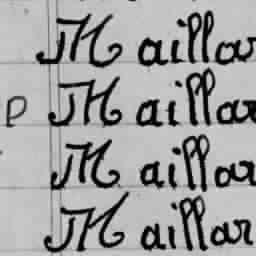 Maillar
p Maillar
Maillar
Maillar